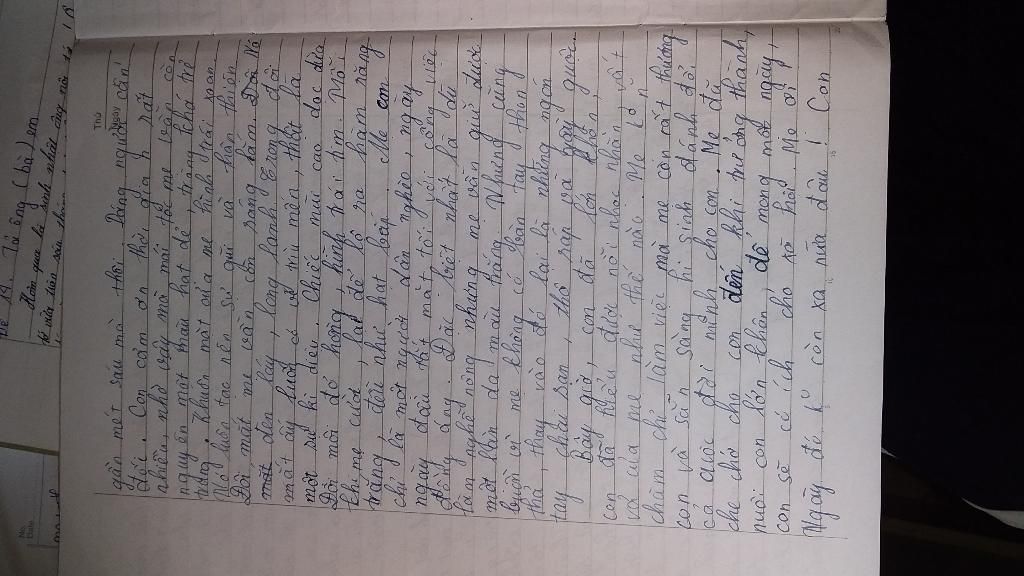 Thứ
Ngày
gần mét sáu mà thôi. Dáng người cân
đối. Con cảm ơn thời gian rất
nhiên, nhờ vậy mà mái tóc mẹ vẫn còn
nguyên một màu hạt dẻ, trông khá trẻ
trung. Khuôn mặt của mẹ hình trái xoan.
Nó luôn tạo nên sự gần gũi và thân thiện.
Đôi mắt mẹ vẫn còn sáng lắm. Đôi
đen láy, long lanh. Trong đôi
mắt ấy luôn có vẻ trìu mến, thật là
một sự kì diệu. Chiếc mũi cao dọc dừa.
Đôi môi đỏ hồng, hình trái tim. Mỗi
khi mẹ cười, lại để lộ ra hàm răng
trắng, đều như hạt bắp. Mẹ con
chỉ là một người dân nghèo, ngày
ngày đầu tắt mặt tối với công việc
đồng áng. Đặc biệt nhất là dù
làm nghề nông nhưng mẹ vẫn giữ được
một làn da màu trắng. Nhưng cũng
buồn vì mẹ không có bàn tay thon
thả, thay vào đó lại là những ngón
tay chai sạn, thô ráp và gầy guộc.
Bây giờ, con đã lớn khôn,
con đã hiểu được nỗi nhọc nhằn, vất
vả của mẹ như thế nào. Mẹ lớn
chăm chỉ làm việc mà mẹ còn rất thương
con và sẵn sàng hi sinh, đánh đổi
cả cuộc đời mình cho con. Mẹ đã
che chở cho con đến khi trưởng thành,
nuôi con lớn khôn để mong một ngày,
con sẽ có ích cho xã hội. Mẹ ơi!
Ngày đó k° còn xa nữa đâu! Con
tả về ông (bà) em
Hôm qua là sinh nhật ông nội tớ
No.
Date